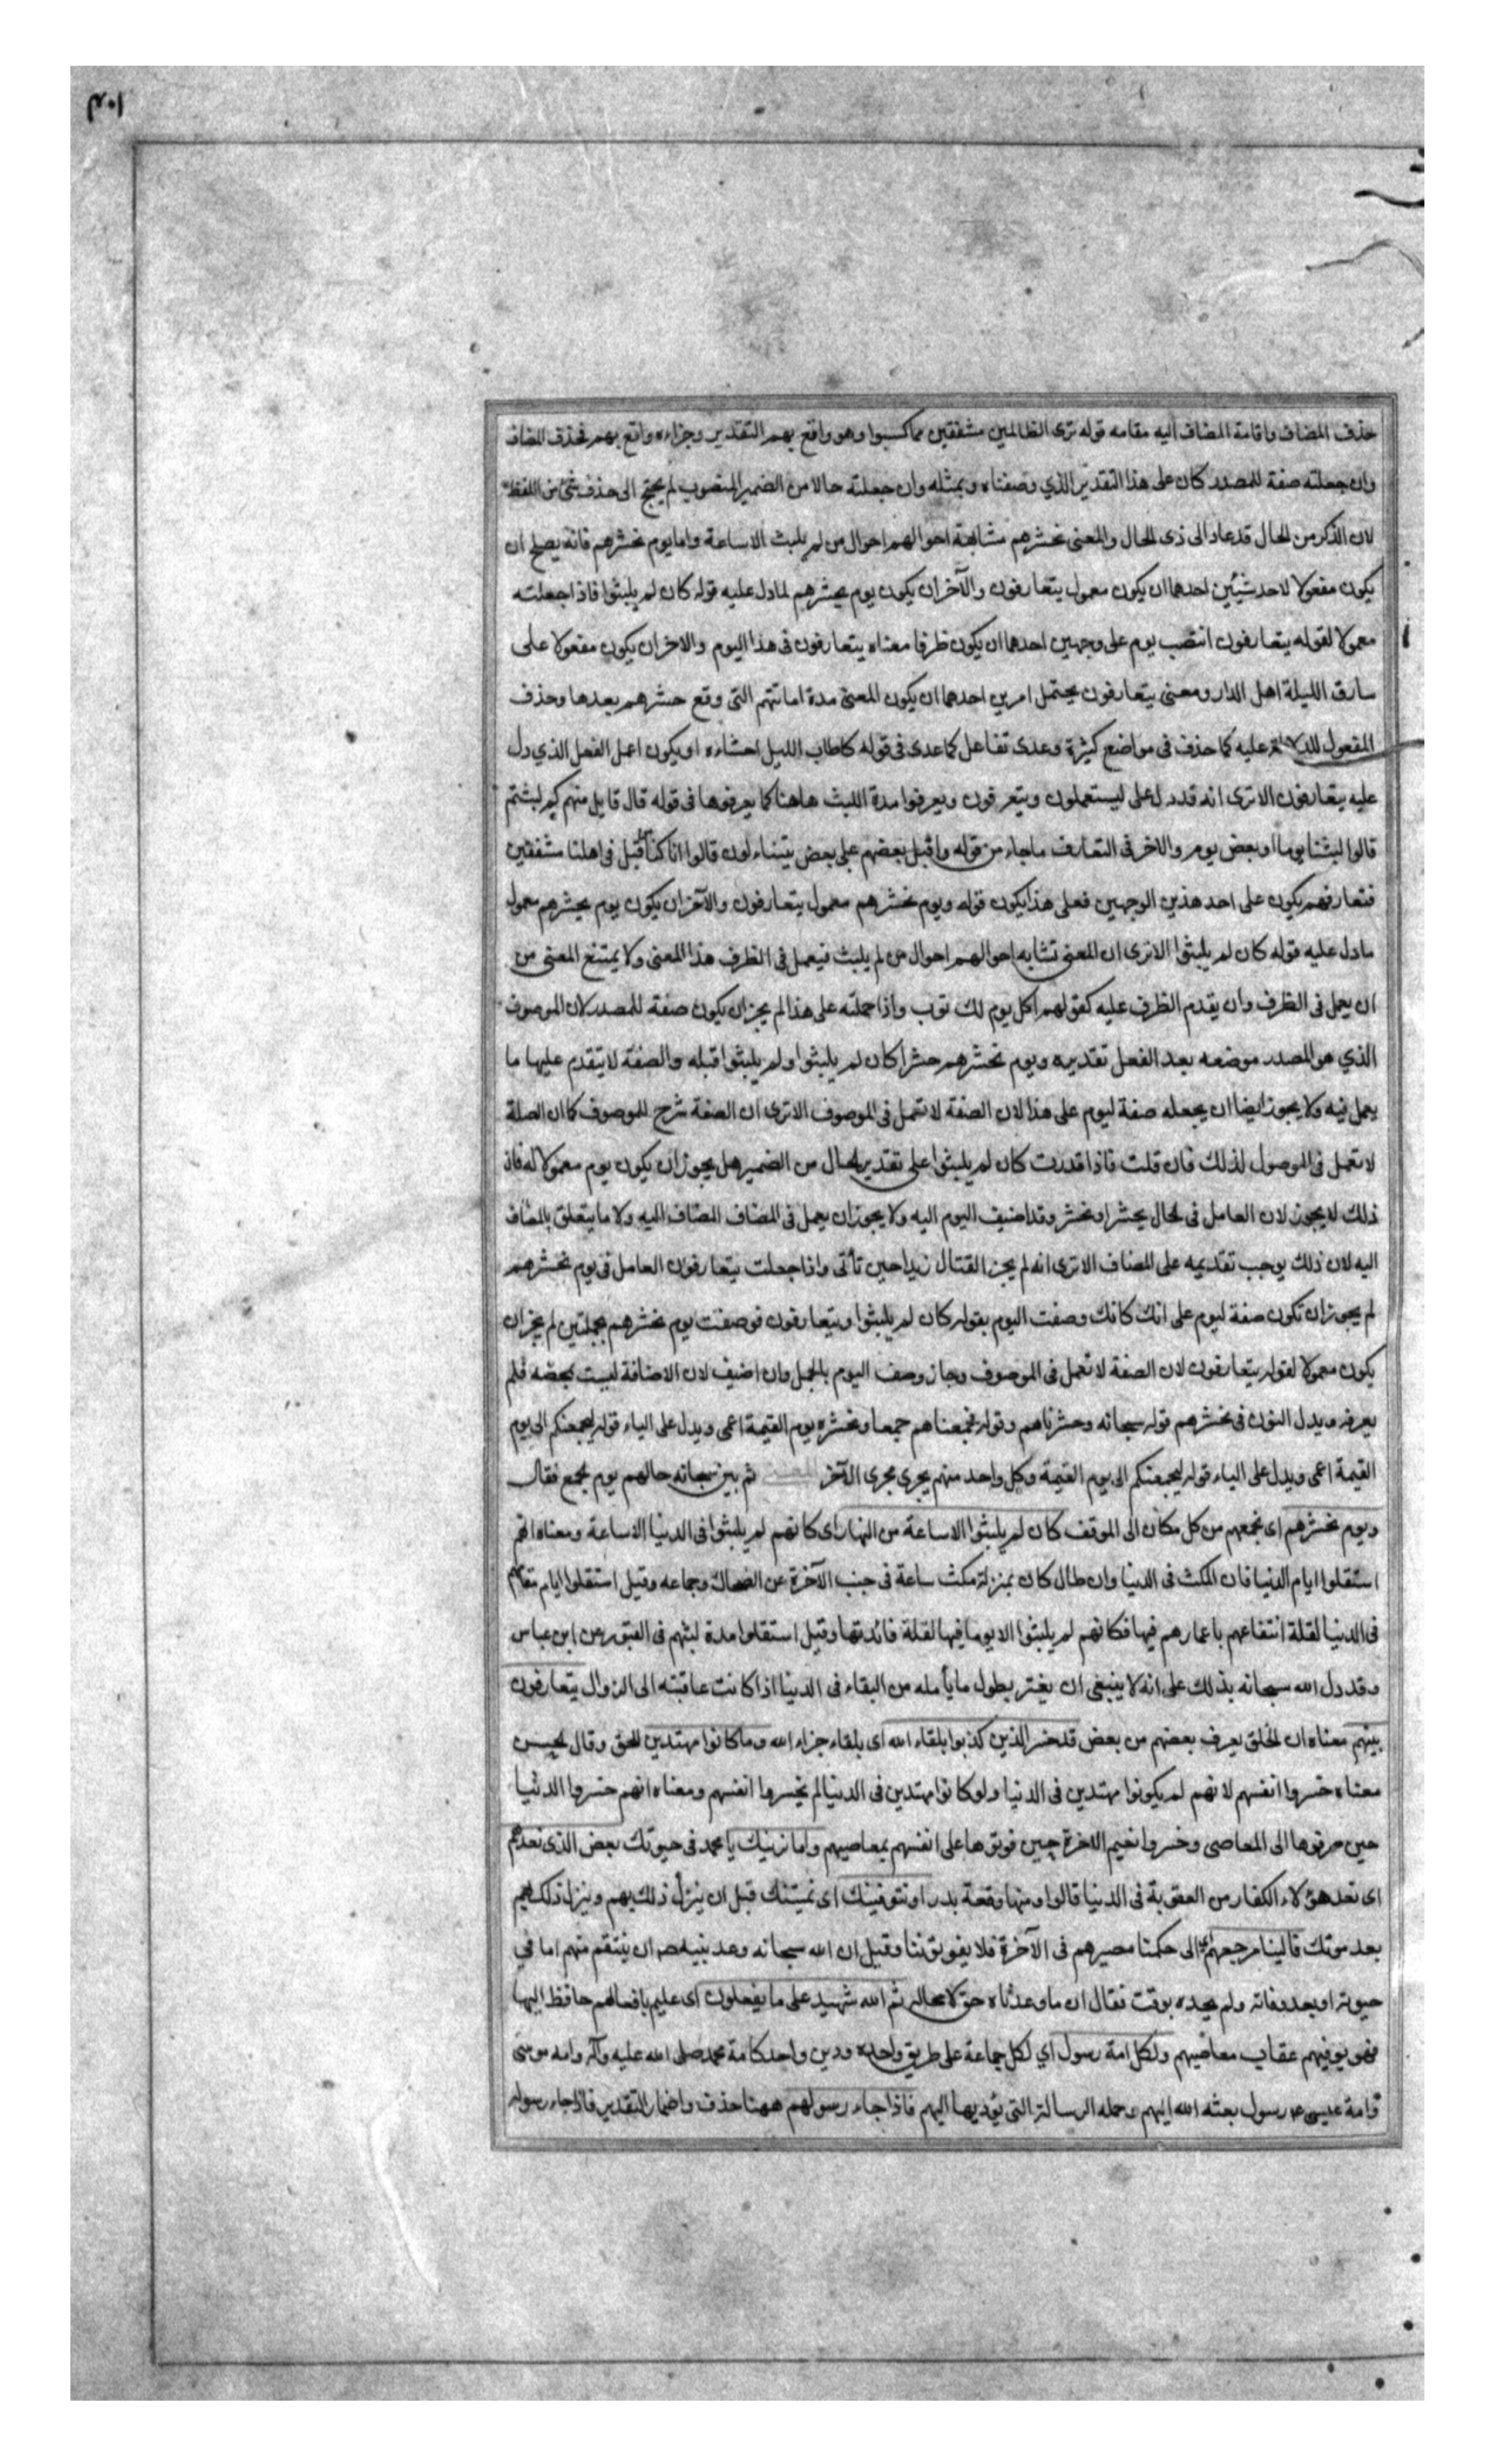 حذف المضاف واقامة المضاف اليه مقامه قوله ترى الظالمين مشفقين مما كسبوا وهو واقع بهم التقدير وجزاءه واقع بهم فحذف المضاف
وان جعلته صفة للمصدر كان على هذا التقدير الذي وصفناه وبمثله وان جعلته حالا من الضمير المنصوب لم يحتج الى حذف شئ من اللفظ
لان الذكر من الحال قد عاد الى ذى الحال والمعنى نحشرهم مشابهة احوالهم احوال من لم يلبث الا ساعة واما يوم نحشرهم فانه يصلح ان
يكون مفعولا لاحد شيئين احدهما ان يكون معمول يتعارفون والآخر ان يكون يوم يحشرهم لما دل عليه قوله كان لم يلبثوا فاذا جعلته
معمولا لقوله يتعارفون انتصب يوم على وجهين احدهما ان يكون ظرفا معناه يتعارفون فى هذا اليوم والاخر ان يكون مفعولا على
سارق الليلة اهل الدار ومعنى يتعارفون يحتمل امرين احدهما ان يكون المعنى مدة اماتتهم التى وقع حشرهم بعدها وحذف
المفعول للدلالة عليه كما حذف فى مواضع كثيرة وعدى تفاعل كما عدى فى قوله كاطاب الليل احشاءه او يكون اعمل الفعل الذي دل
عليه يتعارفون الا ترى انه قد دل على ليستعملون ويتعرفون ويعرفوا مدة اللبث هاهنا كما يعرفوها فى قوله قال قايل منهم كم لبثتم
قالوا لبثنا يوما او بعض يوم والاخر فى التعارف ما جاء من قوله واقبل بعضهم على بعض يتساءلون قالوا انا كنا قبل فى اهلنا مشفقين
فتعارفهم يكون على احد هذين الوجهين فعلى هذا يكون قوله ويوم نحشرهم معمول يتعارفون والآخر ان يكون يوم يحشرهم معمول
ما دل عليه قوله كان لم يلبثوا الا ترى ان المعنى تشابه احوالهم احوال من لم يلبث فيعمل فى الظرف هذا المعنى ولا يمتنع المعنى من
ان يعمل فى الظرف وان يقدم الظرف عليه كقولهم اكل يوم لك ثوب واذا حملته على هذا لم يجز ان يكون صفة للمصدر لان الموصوف
الذي هو المصدر موضعه بعد الفعل تقديره ويوم نحشرهم حشرا كان لم يلبثوا ولم يلبثوا قبله والصفة لا يتقدم عليها ما
يعمل فيه ولا يجوز ايضا ان يجعله صفة ليوم على هذا لان الصفة لا تعمل فى الموصوف الا ترى ان الصفة شرح للموصوف كما ان الصلة
لا تعمل فى الموصول لذلك فان قلت فاذا قدرت كان لم يلبثوا على تقدير الحال من الضمير هل يجوز ان يكون يوم معمولا له فان
ذلك لا يجوز لان العامل فى الحال يحشر او نحشر وقد اضيف اليوم اليه ولا يجوز ان يعمل فى المضاف المضاف اليه ولا ما يتعلق بالمضاف
اليه لان ذلك يوجب تقديمه على المضاف الا ترى انه لم يجز القتال زيدا حين تأتى واذا جعلت يتعارفون العامل فى يوم نحشرهم
لم يجوز ان تكون صفة ليوم على انك كانك وصفت اليوم بقوله كان لم يلبثوا ويتعارفون فوصفت يوم نحشرهم بجملتين لم يجز ان
يكون معمولا لقوله يتعارفون لان الصفة لا تعمل فى الموصوف وجاز وصف اليوم بالجمل وان اضيف لان الاضافة ليست بمحضه فلم
يعرفه ويدل النون فى نحشرهم قوله سبحانه وحشرناهم وقوله فجمعناهم جمعا ونحشره يوم القيمة اعمى ويدل على الياء قوله ليجمعنكم الى يوم
القيمة اعمى ويدل على الياء قوله ليجمعنكم الى يوم القيمة وكل واحد منهم يجرى مجرى الآخر ثم بين سبحانه حالهم يوم يجمع فقال
ويوم نحشرهم اى نجمعهم من كل مكان الى الموقف كان لم يلبثوا الا ساعة من النهار اى كانهم لم يلبثوا فى الدنيا الا ساعة ومعناه انهم
استقلوا ايام الدنيا فان المكث فى الدنيا وان طال كان بمنزلة مكث ساعة فى جنب الآخرة عن الضحاك وجماعه وقيل استقلوا ايام مقامهم
فى الدنيا لقلة انتفاعهم باعمارهم فيها فكانهم لم يلبثوا الا يوما فيها لقلة فائدتها وقيل استقلوا مدة لبثهم فى القبور عن ابن عباس
وقد دل الله سبحانه بذلك على انه لا ينبغى ان يغتر بطول ما يأمله من البقاء فى الدنيا اذا كانت عاقبته الى الزوال يتعارفون
بينهم معناه ان الخلق يعرف بعضهم من بعض قد خسر الذين كذبوا بلقاء الله اى بلقاء جزاء الله وما كانوا مهتدين للحق وقال الحسن
معناه خسروا انفسهم لانهم لم يكونوا مهتدين فى الدنيا ولو كانوا مهتدين فى الدنيا لم يخسروا انفسهم ومعناه انهم خسروا الدنيا
حين صرفوها الى المعاصى وخسروا نعيم الاخرة حين فوتوها على انفسهم بمعاصيهم واما نرينك يا محمد فى حيوتك بعض الذى نعدهم
اى نعد هؤلاء الكفار من العقوبة فى الدنيا قالوا ومنها وقعة بدر او نتوفينك اى نميتنك قبل ان ينزل ذلك بهم وينزل ذلك بهم
بعد موتك فالينا مرجعهم اى الى حكمنا مصيرهم فى الآخرة فلا يفوتوننا وقيل ان الله سبحانه وعد نبيه ص ان ينتقم منهم اما في
حيوته او بعد وفاته ولم يحده بوقت فقال ان ما وعدناه حق لا محاله ثم الله شهيد على ما يفعلون اى عليم بافعالهم حافظ اليها
فهو يوفيهم عقاب معاصيهم ولكل امة رسول اي لكل جماعة على طريق واحده ودين واحد كامة محمد صلى الله عليه وآله وامه موسى
وامة عيسى ع رسول بعثه الله اليهم وحمله الرسالة التى يؤديها اليهم فاذا جاء رسولهم ههنا حذف واضمار التقدير فاذا جاء رسوله